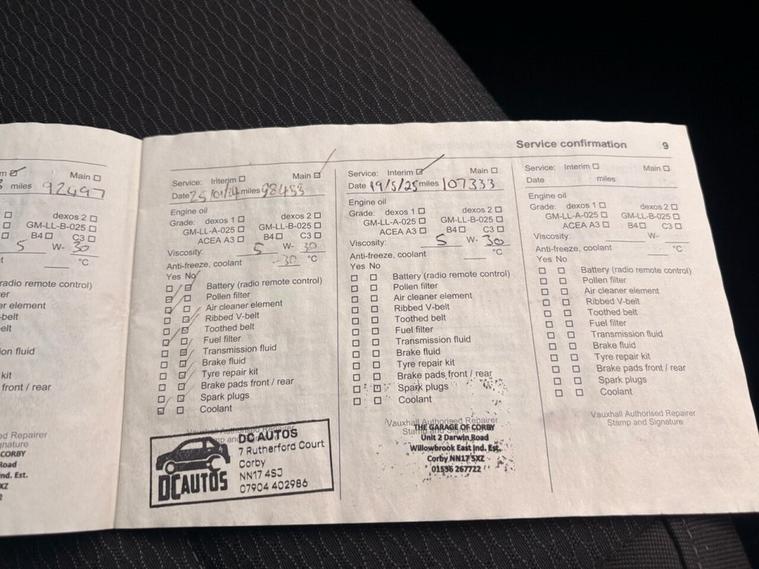 Service confirmation 9
Main
miles 92497
dexos 2
GM-LL-B-025
B4 C3
5 W- 30
°C
radio remote control)
er element
-belt
elt
ion fluid
kit
front / rear
ed Repairer
gnature
CORBY
Road
nd. Est.
XZ
Service: Interim Main
Date miles 98453
Engine oil
Grade: dexos 1 dexos 2
GM-LL-A-025 GM-LL-B-025
ACEA A3 B4 C3
Viscosity: 5 W- 30
Anti-freeze, coolant -30 °C
Yes No
Battery (radio remote control)
Pollen filter
Air cleaner element
Ribbed V-belt
Toothed belt
Fuel filter
Transmission fluid
Brake fluid
Tyre repair kit
Brake pads front / rear
Spark plugs
Coolant
Vauxhall Authorised Repairer
DC AUTOS
7 Rutherford Court
Corby
NN17 4SJ
07904 402986
DCAUTOS
Service: Interim Main
Date 19/5/25 miles 107333
Engine oil
Grade: dexos 1 dexos 2
GM-LL-A-025 GM-LL-B-025
ACEA A3 B4 C3
Viscosity: 5 W- 30
Anti-freeze, coolant °C
Yes No
Battery (radio remote control)
Pollen filter
Air cleaner element
Ribbed V-belt
Toothed belt
Fuel filter
Transmission fluid
Brake fluid
Tyre repair kit
Brake pads front / rear
Spark plugs
Coolant
Vauxhall Authorised Repairer
Stamp and Signature
THE GARAGE OF CORBY
Unit 2 Darwin Road
Willowbrook East Ind. Est.
Corby NN17 5XZ
01536 267722
Service: Interim Main
Date miles
Engine oil
Grade: dexos 1 dexos 2
GM-LL-A-025 GM-LL-B-025
ACEA A3 B4 C3
Viscosity: W-
Anti-freeze, coolant °C
Yes No
Battery (radio remote control)
Pollen filter
Air cleaner element
Ribbed V-belt
Toothed belt
Fuel filter
Transmission fluid
Brake fluid
Tyre repair kit
Brake pads front / rear
Spark plugs
Coolant
Vauxhall Authorised Repairer
Stamp and Signature